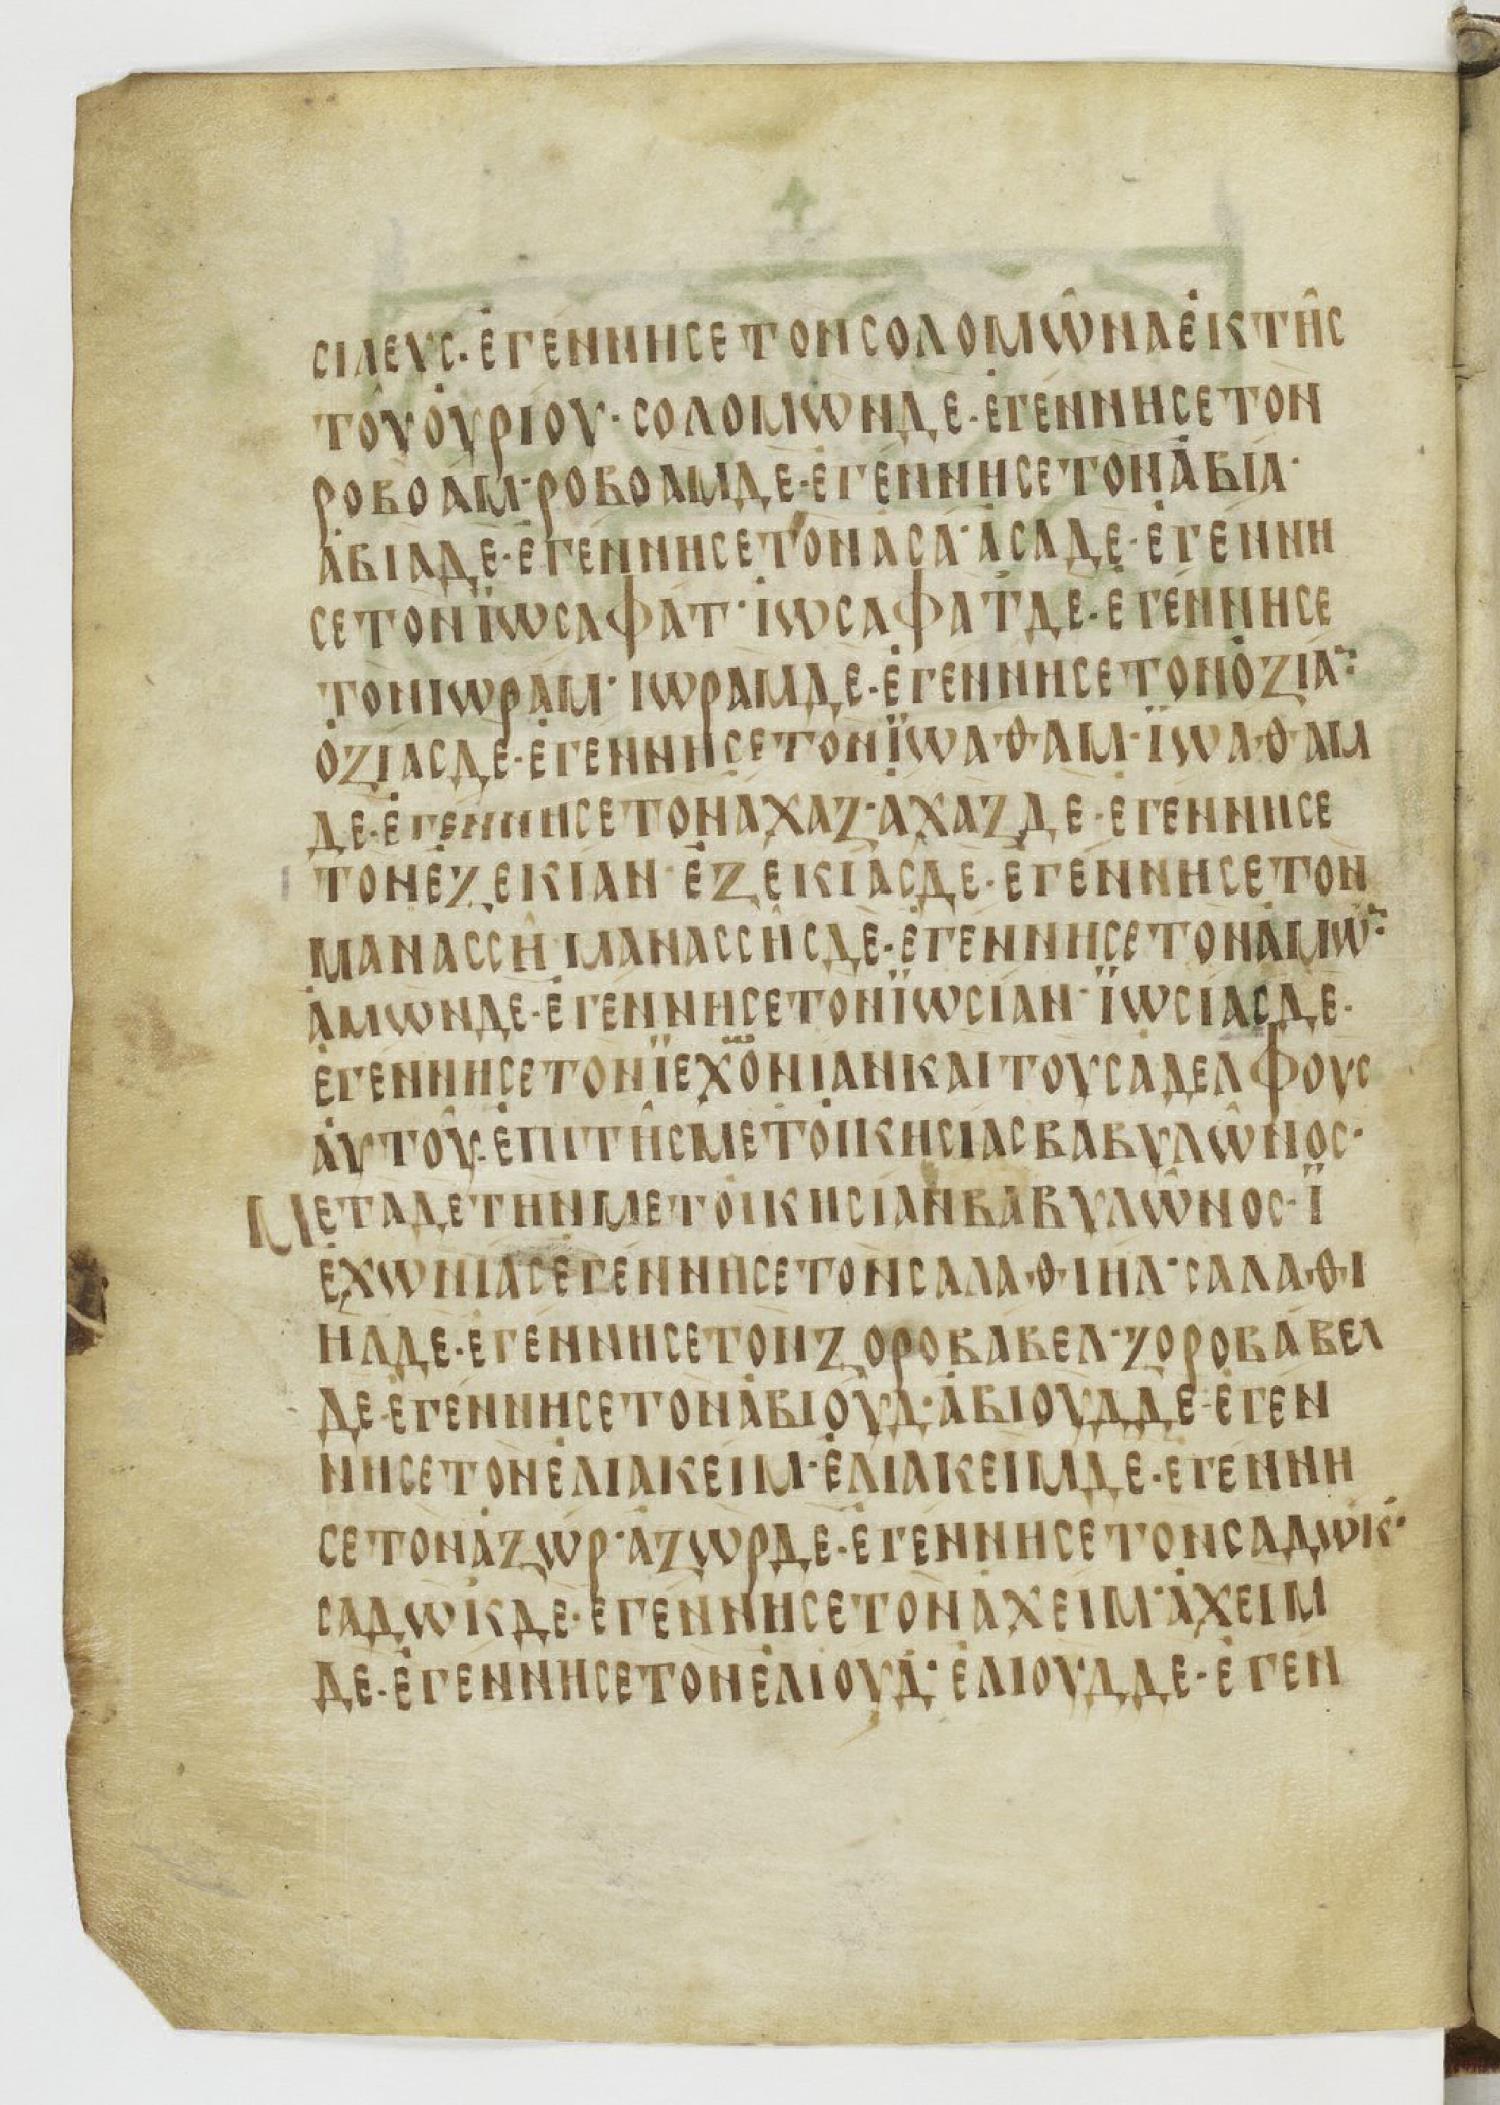 ΣΙΛΕΥΣ·ἘΓΕΝΝΗΣΕΤΟΝΣΟΛΟΜΩ͂ΝΑἘΚΤΗ͂Σ
ΤΟΥ͂ΟΥ̓ΡΙΟΥ·ΣΟΛΟΜΩΝΔΕ·ἘΓΕΝΝΗΣΕΤΟΝ
ΡΟΒΟΑΜ·ΡΟΒΟΑΜΔΕ·ἘΓΕΝΝΗΣΕΤΟΝἈΒΙΑ·
ἈΒΙΑΔΕ·ἘΓΕΝΝΗΣΕΤΟΝΑΣΑ·ἈΣΑΔΕ·ἘΓΕΝΝΗ
ΣΕΤΟΝΪΩΣΑΦΑΤ·ΙΩΣΑΦΑΤΔΕ·ἘΓΕΝΝΗΣΕ
ΤΟΝΙΩΡΑΜ·ΙΩΡΑΜΔΕ·ἘΓΕΝΝΗΣΕΤΟΝὈΖΙΑ̅·
ὈΖΙΑΣΔΕ·ἘΓΕΝΝΗΣΕΤΟΝΪΩΑΘΑΜ·ΪΩΑΘΑΜ
ΔΕ·ἘΓΕΝΝΗΣΕΤΟΝΑΧΑΖ·ΑΧΑΖΔΕ·ἘΓΕΝΝΗΣΕ
ΤΟΝἘΖΕΚΙΑΝ·ἘΖΕΚΙΑΣΔΕ·ἘΓΕΝΝΗΣΕΤΟΝ
ΜΑΝΑΣΣΗ͂·ΜΑΝΑΣΣΗ͂ΣΔΕ·ἘΓΕΝΝΗΣΕΤΟΝἈΜΩ̅·
ἈΜΩΝΔΕ·ἘΓΕΝΝΗΣΕΤΟΝΪΩΣΙΑΝ·ΪΩΣΙΑΣΔΕ·
ἘΓΕΝΝΗΣΕΤΟΝΪΕΧΟΝΙΑΝΚΑΙΤΟΥΣΑΔΕΛΦΟΥΣ
ἈΥΤΟΥ͂·ἘΠΙΤΗ͂ΣΜΕΤΟΙΚΗΣΙΑΣΒΑΒΥΛΩ͂ΝΟΣ·
ΜΕΤΑΔΕΤΗΝΜΕΤΟΙΚΗΣΙΑΝΒΑΒΥΛΩ͂ΝΟΣ·Ϊ
ΕΧΩΝΙΑΣΕΓΕΝΝΗΣΕΤΟΝΣΑΛΑΘΙΗΛ·ΣΑΛΑΘΙ
ΗΛΔΕ·ἘΓΕΝΝΗΣΕΤΟΝΖΟΡΟΒΑΒΕΛ·ΖΟΡΟΒΑΒΕΛ
ΔΕ·ἘΓΕΝΝΗΣΕΤΟΝἈΒΙΟΥΔ·ἈΒΙΟΥΔΔΕ·ἘΓΕΝ
ΝΗΣΕΤΟΝἘΛΙΑΚΕΙΜ·ἘΛΙΑΚΕΙΜΔΕ·ἘΓΕΝΝΗ
ΣΕΤΟΝἈΖΩΡ·ἈΖΩΡΔΕ·ἘΓΕΝΝΗΣΕΤΟΝΣΑΔΩΚ·
ΣΑΔΩΚΔΕ·ἘΓΕΝΝΗΣΕΤΟΝἈΧΕΙΜ·ἈΧΕΙΜ
ΔΕ·ἘΓΕΝΝΗΣΕΤΟΝἘΛΙΟΥΔ·ἘΛΙΟΥΔΔΕ·ἘΓΕΝ